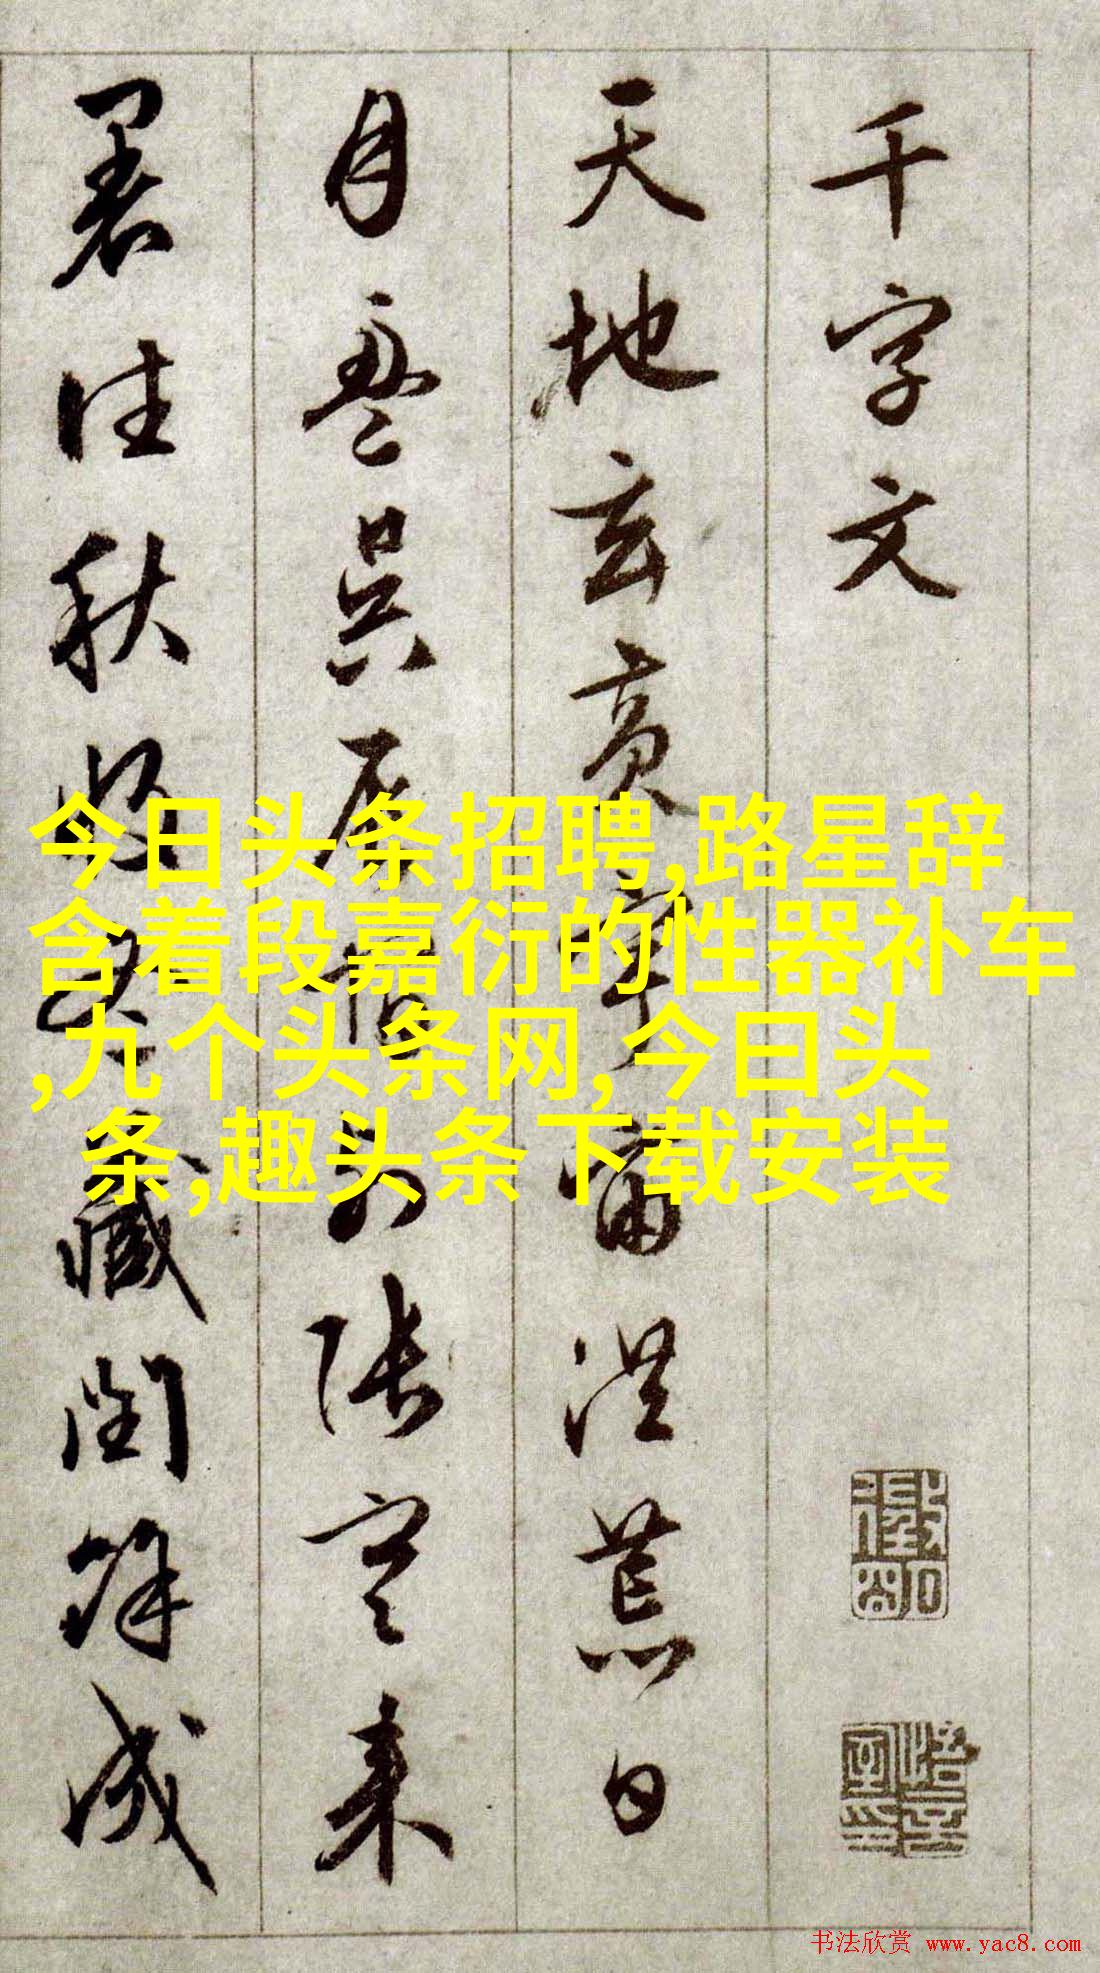 千字文
天地玄黃宇宙洪荒日
月盈昃辰宿列張寒來
暑往秋收冬藏閏餘成
今日头条招聘,路星辞
含着段嘉衍的性器补车
,九个头条网,今曰头
条,趣头条下载安装
书法欣赏 www.yac8.com